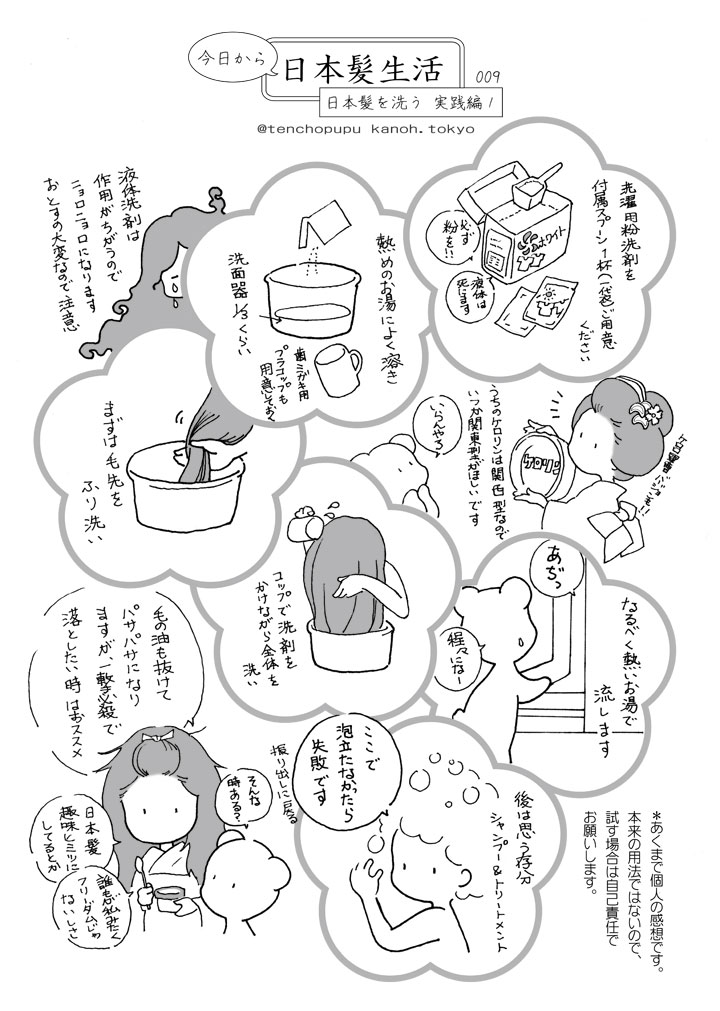 今日から
日本髪生活
009
日本髪を洗う 実践編1
@tenchopupu kanoh.tokyo
洗濯用粉洗剤を
付属スプーン1杯(1袋)ご用意
ください
必ず
粉を!!
液体は
死にます
ホワイト
熱めのお湯によく溶き
洗面器1/3くらい
歯ミガキ用
プラコップも
用意しておく
液体洗剤は
作用がちがうので
ニョロニョロになります
おとすの大変なので注意
まずは毛先を
ふり洗い
ケロリン
うちのケロリンは関西型なので
いつか関東型がほしいです
いらんやろ
コップで洗剤を
かけながら全体を
洗い
あぢっ
なるべく熱いお湯で
流します
毛の油も抜けて
パサパサになり
ますが、一撃必殺で
落としたい時はおススメ
そんな
時ある?
日本髪
趣味レミツに
してるとか
誰もが私みたく
フリーダムじゃ
ないしさ
振り出しに戻る
ここで
泡立たなかったら
失敗です
後は思う存分
シャンプー&トリートメント
＊あくまで個人の感想です。
本来の用法ではないので、
試す場合は自己責任で
お願いします。